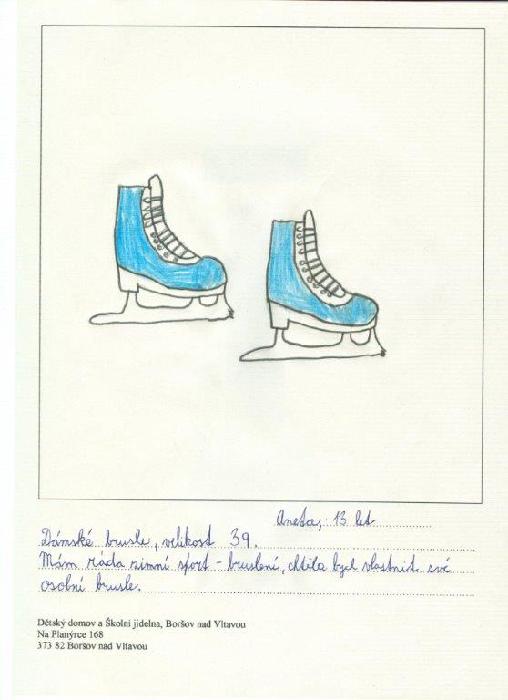 Aneta, 13 let
Dámské brusle, velikost 39.
Mám ráda zimní sport - bruslení, chtěla bych vlastnit své
osobní brusle.
Dětský domov a Školní jídelna, Boršov nad Vltavou
Na Planýrce 168
373 82 Boršov nad Vltavou